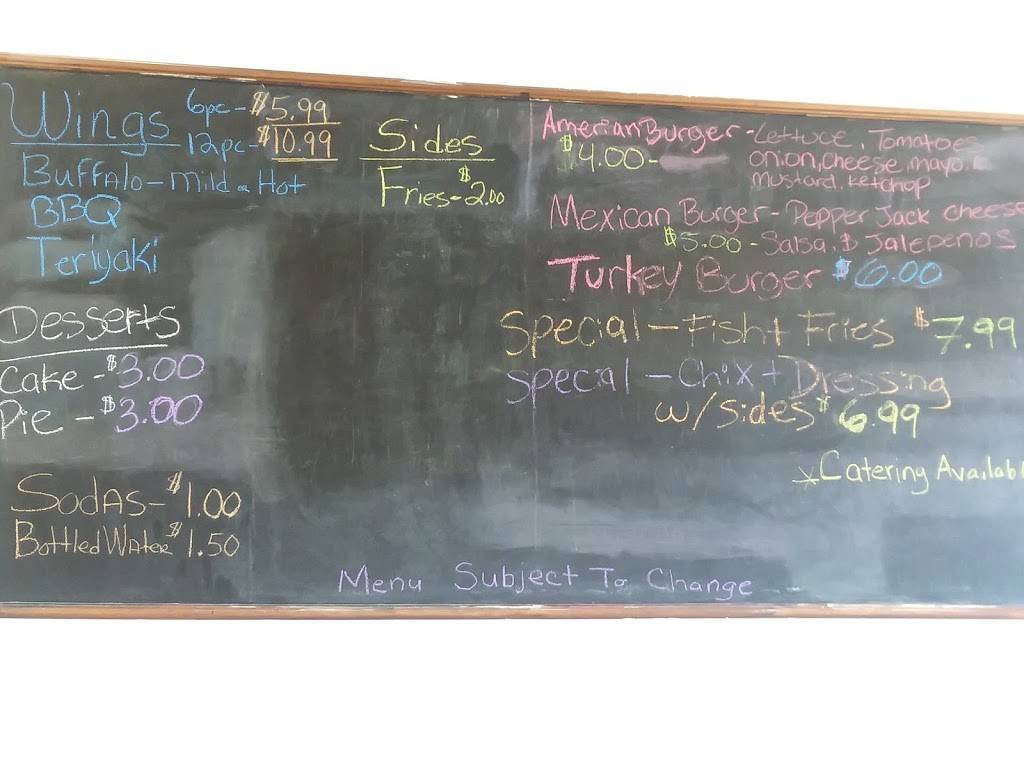 Wings 6pc - $5.99
12pc - $10.99
Buffalo - Mild or Hot
BBQ
Teriyaki
Desserts
Cake - $3.00
Pie - $3.00
Sodas - $1.00
Bottled Water $1.50
Sides
Fries - $2.00
Amerian Burger - Lettuce, Tomatoes
$4.00 - onion, cheese, mayo,
mustard, ketchup
Mexican Burger - Pepper Jack cheese
$5.00 - Salsa, & Jalepenos
Turkey Burger $6.00
Special - Fish + Fries $7.99
Special - Chix + Dressing
w/ sides $6.99
*Catering Availabl
Menu Subject To Change